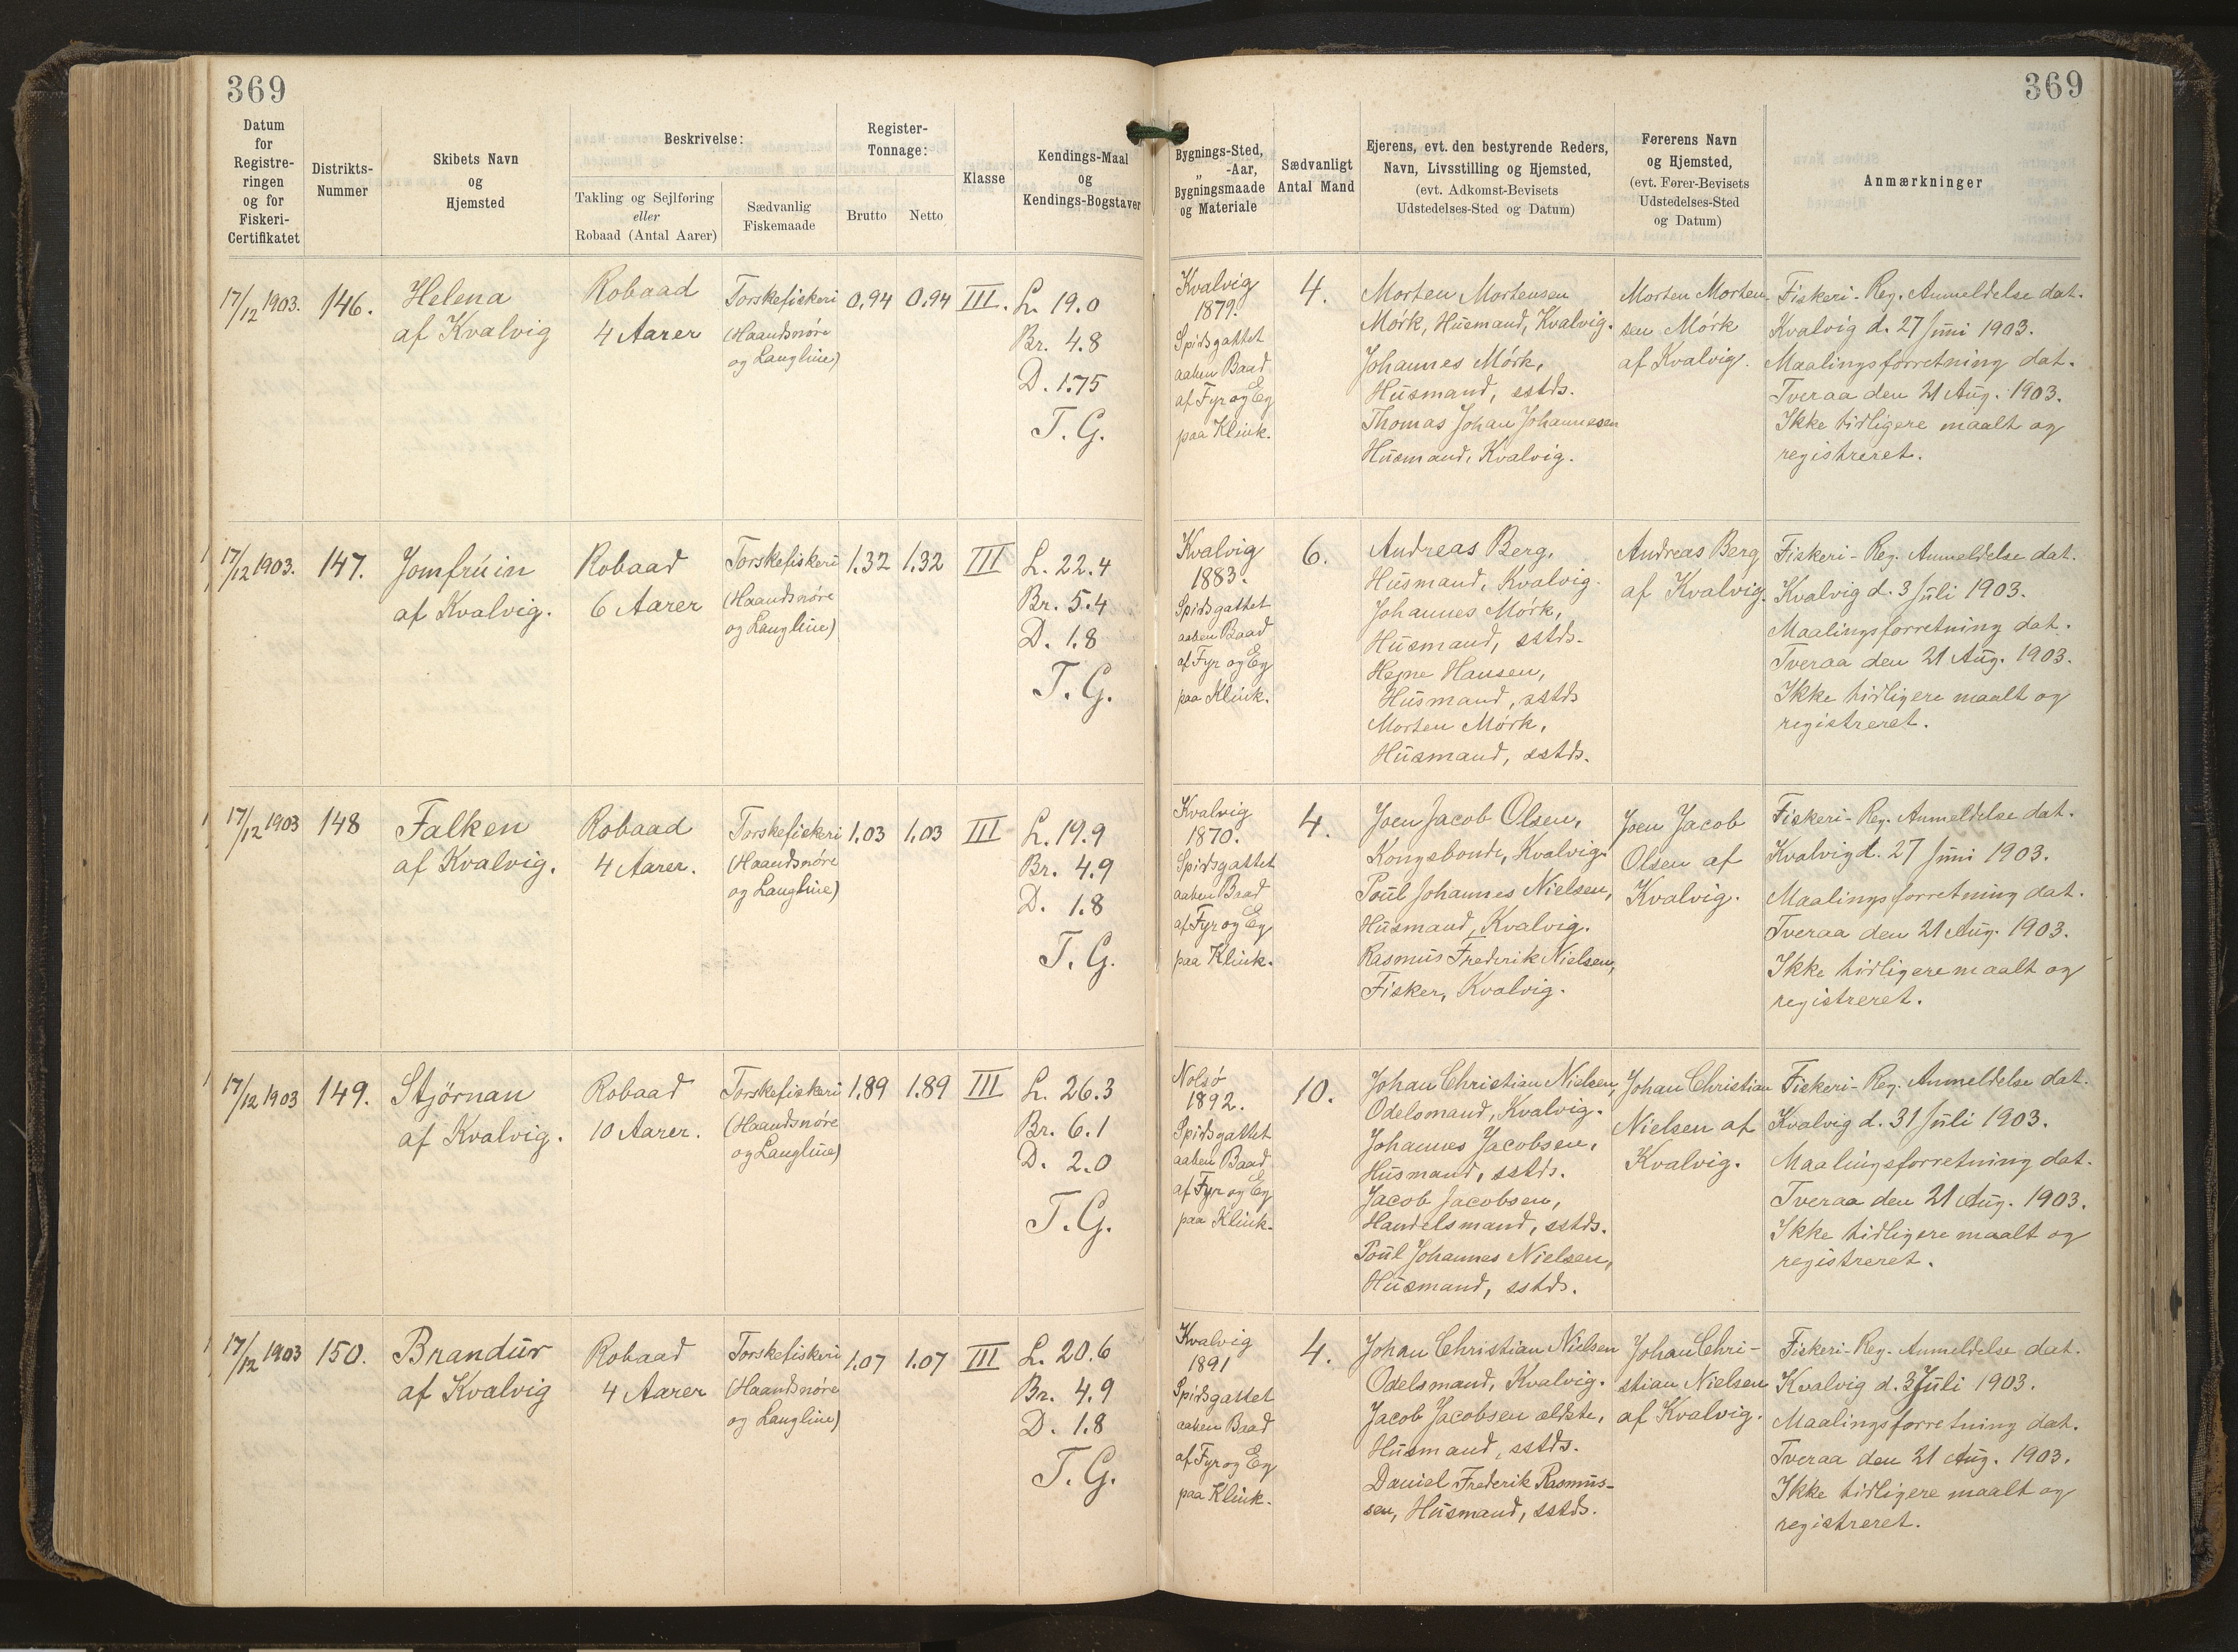 369
369
Datum
for
Registre-
ringen
og for
Fiskeri-
Certifikatet
Distrikts-
Nummer
Skibets Navn
og
Hjemsted
Beskrivelse:
Takling og Sejlføring
eller
Robaad (Antal Aarer)
Sædvanlig
Fiskemaade
Register-
Tonnage:
Brutto
Netto
Klasse
Kendings-Maal
og
Kendings-Bogstaver
Bygnings-Sted,
„ -Aar,
Bygningsmaade
og Materiale
Sædvanligt
Antal Mand
Ejerens, evt. den bestyrende Reders,
Navn, Livsstilling og Hjemsted,
(evt. Adkomst-Bevisets
Udstedelses-Sted og Datum)
Førerens Navn
og Hjemsted,
(evt. Fører-Bevisets
Udstedelses-Sted
og Datum)
Anmærkninger
17/12 1903.
146.
Helena
af Kvalvig
Robaad
4 Aarer
Torskefiskeri
(Haandsnöre
og Langline)
0,94
0,94
III.
L. 19.0
Br. 4.8
D. 1.75
T. G.
Kvalvig
1879.
Spidsgattet
aaben Baad
af Fyr og Eg
paa Klink.
4.
Morten Mortensen
Mörk, Húsmand, Kvalvig.
Johannes Mörk,
Húsmand, sstds.
Thomas Johan Johannesen
Húsmand, Kvalvig.
Morten Morten-
sen Mörk
af Kvalvig.
Fiskeri-Reg. Anmeldelse dat.
Kvalvig d. 27 Júni 1903.
Maalingsforretning dat.
Tveraa den 21 Aúg. 1903.
Ikke tidligere maalt og
registreret.
17/12 1903.
147.
Jomfrúin
af Kvalvig.
Robaad
6 Aarer
Torskefiskeri
(Haandsnöre
og Langline)
1,32
1,32
III
L. 22.4
Br. 5.4
D. 1.8
T. G.
Kvalvig
1883.
Spidsgattet
aaben Baad
af Fyr og Eg
paa Klink.
6.
Andreas Berg,
Húsmand, Kvalvig.
Johannes Mörk,
Húsmand, sstds.
Hejne Hansen,
Húsmand, sstds
Morten Mörk,
Húsmand, sstds.
Andreas Berg
af Kvalvig.
Fiskeri-Reg. Anmeldelse dat.
Kvalvig d. 3 Júli 1903.
Maalingsforretning dat.
Tveraa den 21 Aúg. 1903.
Ikke tidligere maalt og
registreret.
17/12 1903
148
Falken
af Kvalvig.
Robaad
4 Aarer.
Torskefiskeri
(Haandsnöre
og Langline)
1,03
1,03
III
L. 19.9
Br. 4.9
D. 1.8
T. G.
Kvalvig
1870.
Spidsgattet
aaben Baad
af Fyr og Eg
paa Klink.
4.
Joen Jacob Olsen,
Kongsbonde, Kvalvig.
Poúl Johannes Nielsen,
Húsmand, Kvalvig.
Rasmús Frederik Nielsen,
Fisker, Kvalvig.
Joen Jacob
Olsen af
Kvalvig.
Fiskeri-Reg. Anmeldelse dat.
Kvalvig d. 27 Júni 1903.
Maalingsforretning dat.
Tveraa den 21 Aúg. 1903.
Ikke tidligere maalt og
registreret.
17/12 1903
149.
Stjörnan
af Kvalvig.
Robaad
10 Aarer.
Torskefiskeri
(Haandsnöre
og Langline)
1.89
1.89
III
L. 26.3
Br. 6.1
D. 2.0
T. G.
Nolsö
1892.
Spidsgattet
aaben Baad
af Fyr og Eg
paa Klink.
10.
Johan Christian Nielsen,
Odelsmand, Kvalvig.
Johannes Jacobsen,
Húsmand, sstds.
Jacob Jacobsen,
Handelsmand, sstds.
Poúl Johannes Nielsen,
Húsmand, sstds.
Johan Christian
Nielsen af
Kvalvig.
Fiskeri-Reg. Anmeldelse dat.
Kvalvig d. 31 Júli 1903.
Maalingsforretning dat.
Tveraa den 21 Aúg. 1903.
Ikke tidligere maalt og
registreret.
17/12 1903
150.
Brandúr
af Kvalvig
Robaad
4 Aarer
Torskefiskeri
(Haandsnöre
og Langline)
1,07
1.07
III
L. 20.6
Br. 4.9
D. 1.8
T. G.
Kvalvig
1891
Spidsgattet
aaben Baad
af Fyr og Eg
paa Klink.
4.
Johan Christian Nielsen
Odelsmand, Kvalvig.
Jacob Jacobsen ældste,
Húsmand, sstds.
Daniel Frederik Rasmús-
sen, Húsmand, sstds.
Johan Chri-
stian Nielsen
af Kvalvig.
Fiskeri-Reg. Anmeldelse dat.
Kvalvig d. 3 Júli 1903.
Maalingsforretning dat.
Tveraa den 21 Aúg. 1903.
Ikke tidligere maalt og
registreret.